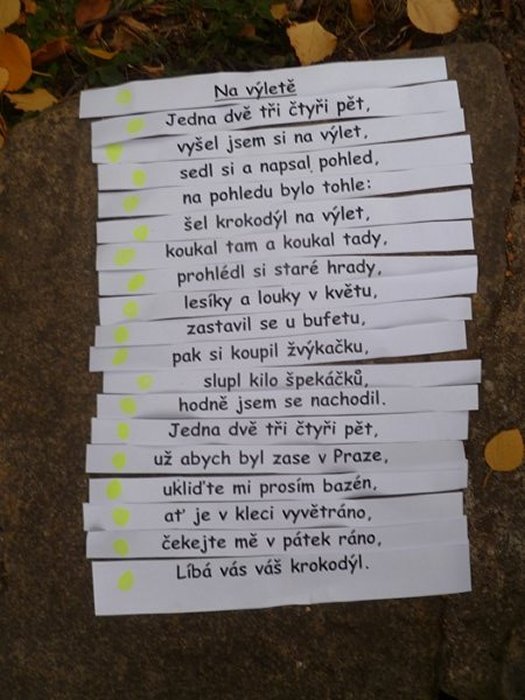 Na výletě
Jedna dvě tři čtyři pět,
vyšel jsem si na výlet,
sedl si a napsal pohled,
na pohledu bylo tohle:
šel krokodýl na výlet,
koukal tam a koukal tady,
prohlédl si staré hrady,
lesíky a louky v květu,
zastavil se u bufetu,
pak si koupil žvýkačku,
slupl kilo špekáčků,
hodně jsem se nachodil.
Jedna dvě tři čtyři pět,
už abych byl zase v Praze,
ukliďte mi prosím bazén,
ať je v kleci vyvětráno,
čekejte mě v pátek ráno,
Líbá vás váš krokodýl.